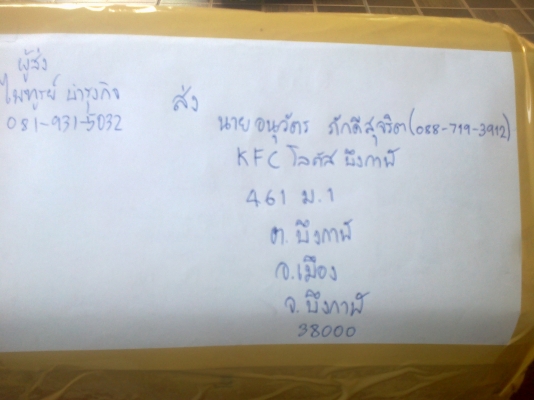 ผู้ส่ง
ไพฑูรย์ บำรุงกิจ
081-931-5032
ส่ง
นายอนุวัตร ภักดีสุจริต (088-719-3912)
KFC โลตัส บึงกาฬ
461 ม.1
ต. บึงกาฬ
อ.เมือง
จ. บึงกาฬ
38000